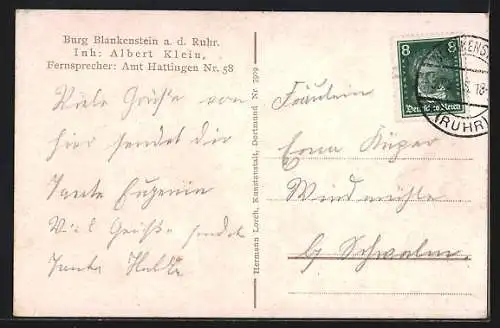 Burg Blankenstein a. d. Ruhr.
Inh: Albert Klein,
Fernsprecher: Amt Hattingen Nr. 58
Viele Grüße von
hier sendet dir
Tante Eugenin
Viel Grüße sendet
Tante
Hermann Lorch, Kunstanstalt, Dortmund Nr. 7909
8 8
Deutsches Reich
(RUHR)
18
Fräulein
Erna Küper
Windmühle
b/ Schwelm